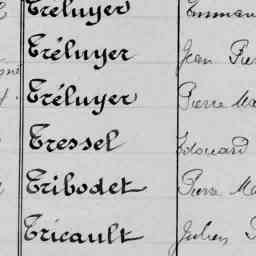 Tréluyer Emman
Tréluyer Jean Pier
Tréluyer Pierre Ma
Tressel Edouard
Tribodet Pierre Ma
Tricault Julien